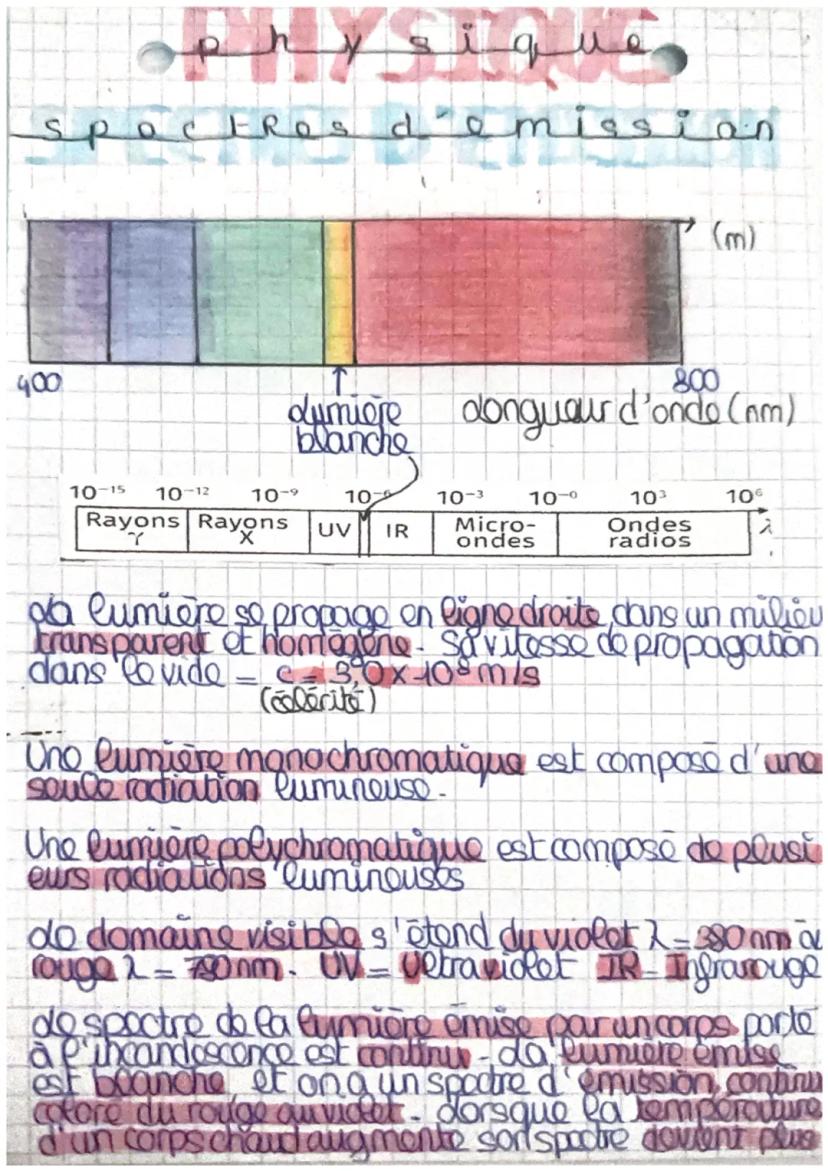 PHYSIQUE
physique
SPECTRES D'EMISSION
spectres d'emission
(m)
400
800
Lumière
blanche
Longueur d'onde (nm)
10⁻¹⁵ 10⁻¹² 10⁻⁹ 10⁻⁶ 10⁻³ 10⁻⁰ 10³ 10⁶
Rayons γ Rayons X UV IR Micro-ondes Ondes radios λ
La lumière se propage en ligne droite, dans un milieu
transparent et homogène. Sa vitesse de propagation
dans le vide = c = 3,0 x 10⁸ m/s
(célérité)
Une lumière monochromatique est composé d'une
seule radiation lumineuse.
Une lumière polychromatique est composé de plusi
eurs radiations lumineuses
Le domaine visible s'étend du violet λ = 380 nm à
rouge λ = 780 nm. UV = Ultraviolet IR = Infrarouge
Le spectre de la lumière émise par un corps porté
à l'incandescence est continu. La lumière émise
est blanche et on a un spectre d'émission, continu
coloré du rouge au violet. Lorsque la température
d'un corps chaud augmente son spectre devient plus